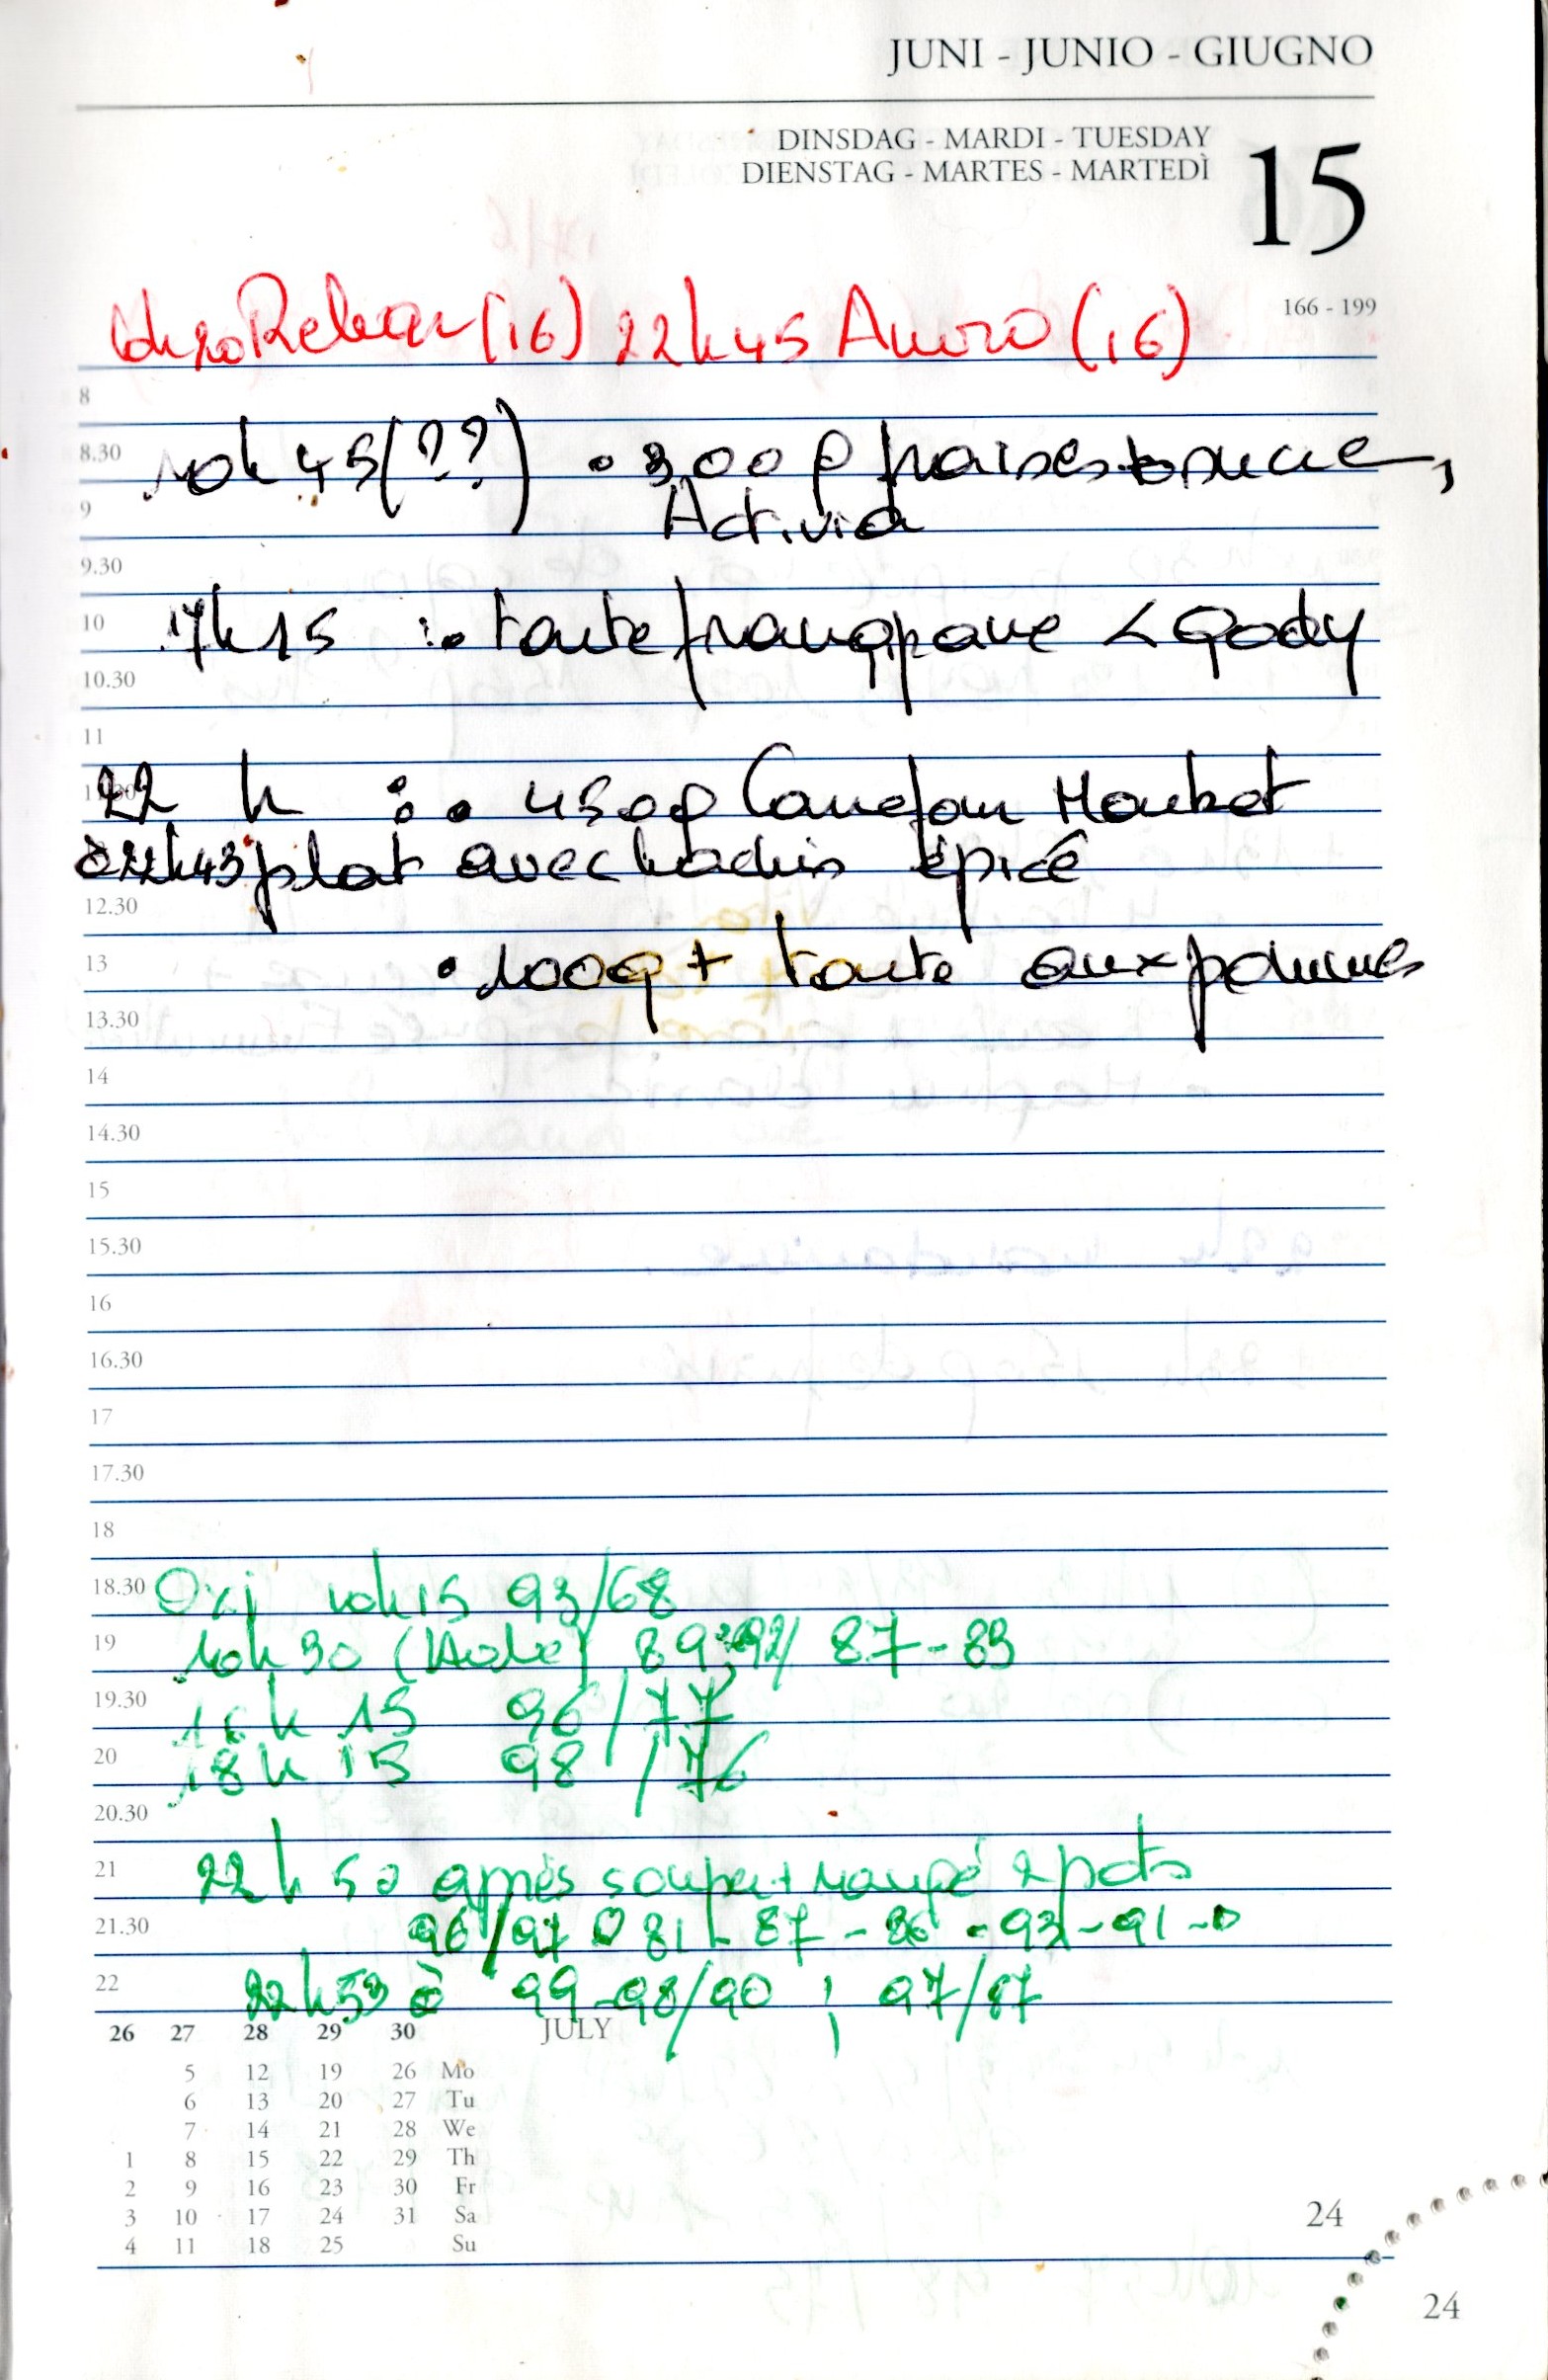 JUNI - JUNIO - GIUGNO
DINSDAG - MARDI - TUESDAY
DIENSTAG - MARTES - MARTEDÌ
15
166 - 199
(16) 22h45 (16)
8
8.30 10h45 (??) • 300g fraises + sucre,
9 Activia
9.30
10 17h15 : • tarte frangipane < Gody
10.30
11
22 h : • 450g Canefour Market
à 22h43 plat avec hachis épicé
12.30
13 • 100g + tarte aux pommes
13.30
14
14.30
15
15.30
16
16.30
17
17.30
18
18.30 Oxi 10h15 93/68
19 10h30 89 92/ 87-83
19.30 16h 15 96/77
20 18h 15 98/76
20.30
21 22h50 après souper + mangé 2 pots
21.30 96/97 81 - 87 - 86 - 93 - 91
22 22h53 à 99-98/90 ; 97/87
26 27 28 29 30 JULY
5 12 19 26 Mo
6 13 20 27 Tu
7 14 21 28 We
1 8 15 22 29 Th
2 9 16 23 30 Fr
3 10 17 24 31 Sa
4 11 18 25 Su
24
24